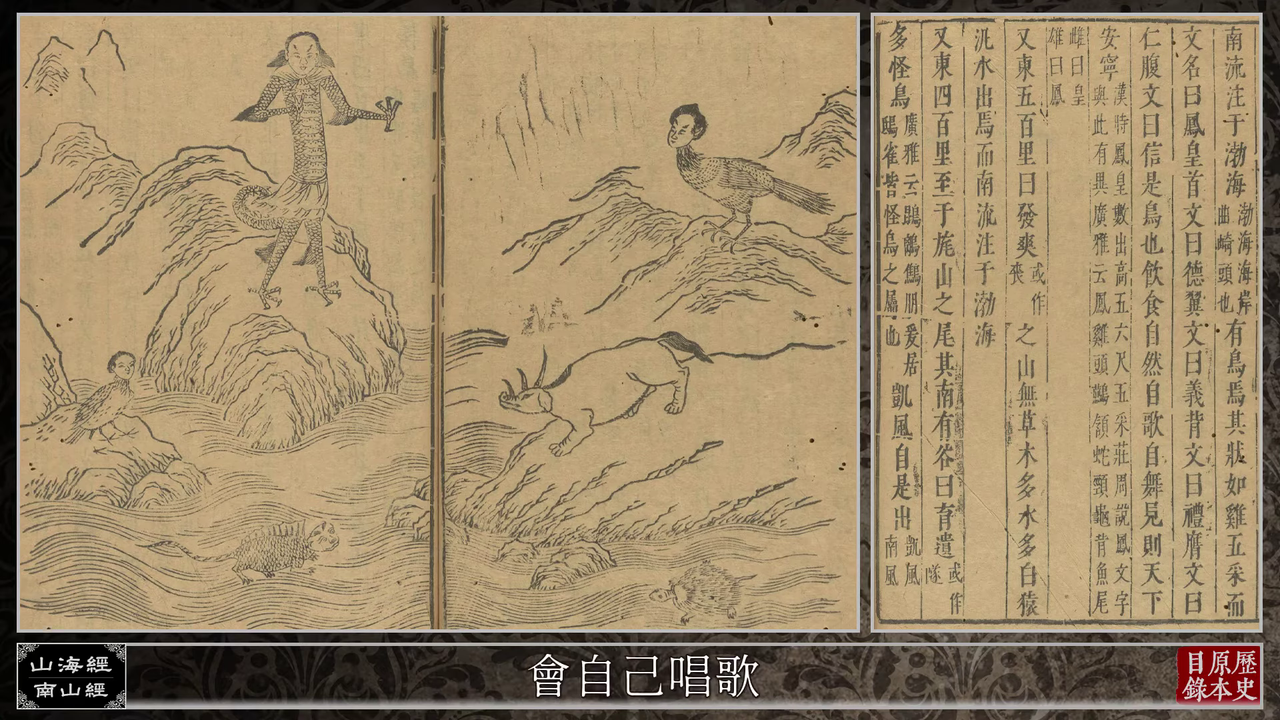 南流注于渤海渤海海岸曲崎頭也有鳥焉其狀如雞五采而
文名曰鳳皇首文曰德翼文曰義背文曰禮膺文曰
仁腹文曰信是鳥也飲食自然自歌自舞見則天下
安寧漢時鳳皇數出高五六尺五采莊周說鳳文字
與此有異廣雅云鳳雞頭鷰領蛇頸龜背魚尾
雌曰皇
雄曰鳳
又東五百里曰發爽或作喪之山無草木多水多白猿
汎水出焉而南流注于渤海
又東四百里至于旄山之尾其南有谷曰育遺或作隧
多怪鳥廣雅云朋爰居鴟雀皆怪鳥之屬也凱風自是出凱風南風
山海經
南山經
會自己唱歌
歷史
原本
目錄